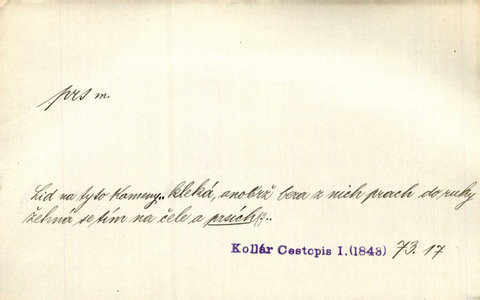 prs m.
Lid na tyto kameny.. kleká, anobrž bera z nich prach do ruky
žehná se tím na čele a prsích
Kollár Cestopis I. (1843) 73. 17